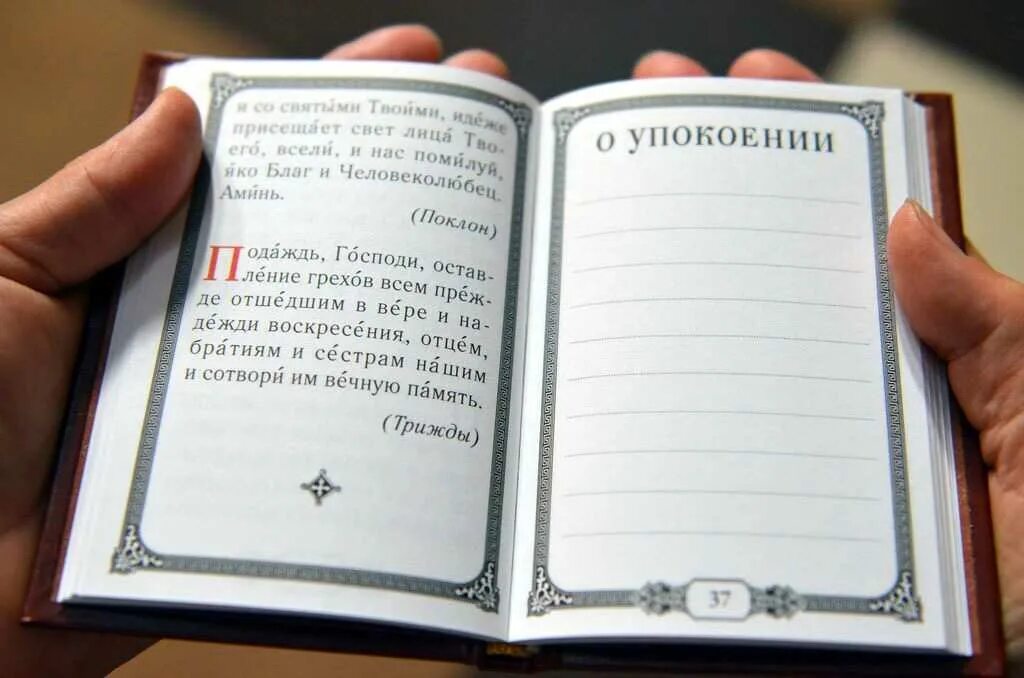 и со святы́ми Твои́ми, иде́же
присеща́ет свет лица́ Тво-
его́, всели́, и нас поми́луй,
я́ко Благ и Человеколю́бец.
Ами́нь.
(Поклон)
Пода́ждь, Го́споди, остав-
ле́ние грехо́в всем пре́ж-
де отше́дшим в ве́ре и на-
де́жди воскресе́ния, отце́м,
бра́тиям и се́страм на́шим
и сотвори́ им ве́чную па́мять.
(Трижды)
О УПОКОЕНИИ
37